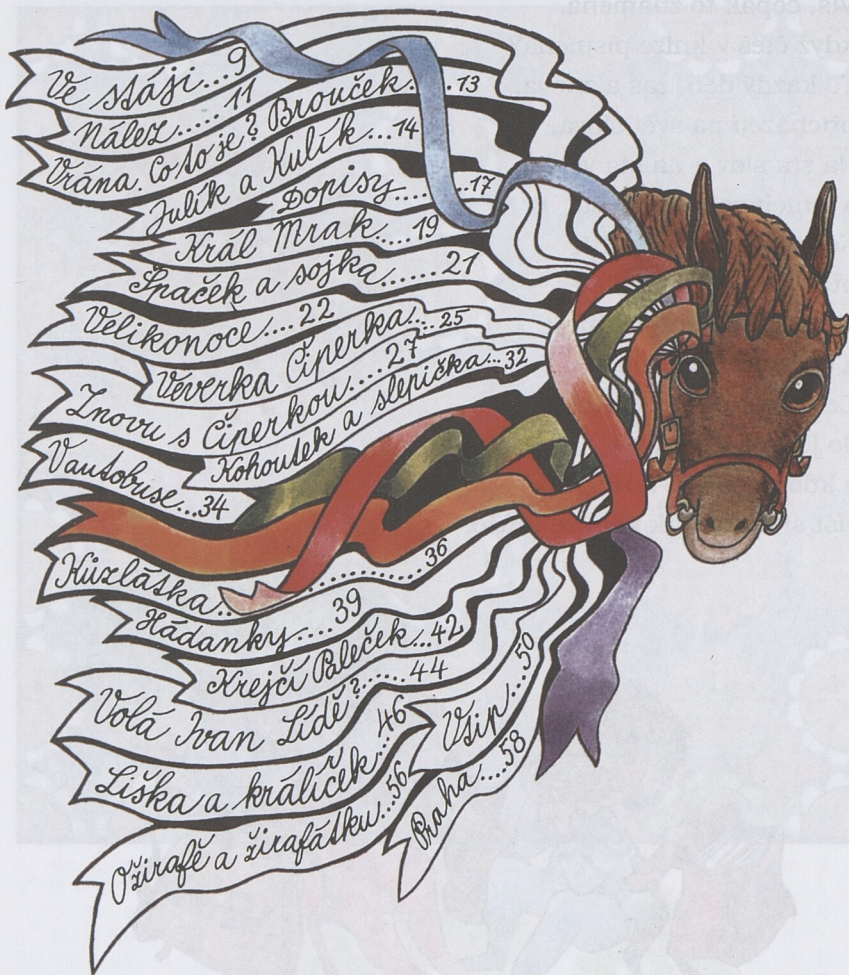 Ve stáji...9
Nález.....11
Vrána. Co to je? Brouček...13
Julík a Kulík...14
Dopisy.....17
Král Mrak....19
Špaček a sojka......21
Velikonoce....22
Veverka Čiperka...25
Znovu s Čiperkou....27
Kohoutek a slepička...32
V autobuse...34
Kůzlátka..............36
Hádanky....39
Krejčí Paleček..42
Volá Ivan Lídě?.....44
Liška a králíček...46
Vtip...50
O žirafě a žirafátku...56
Praha....58